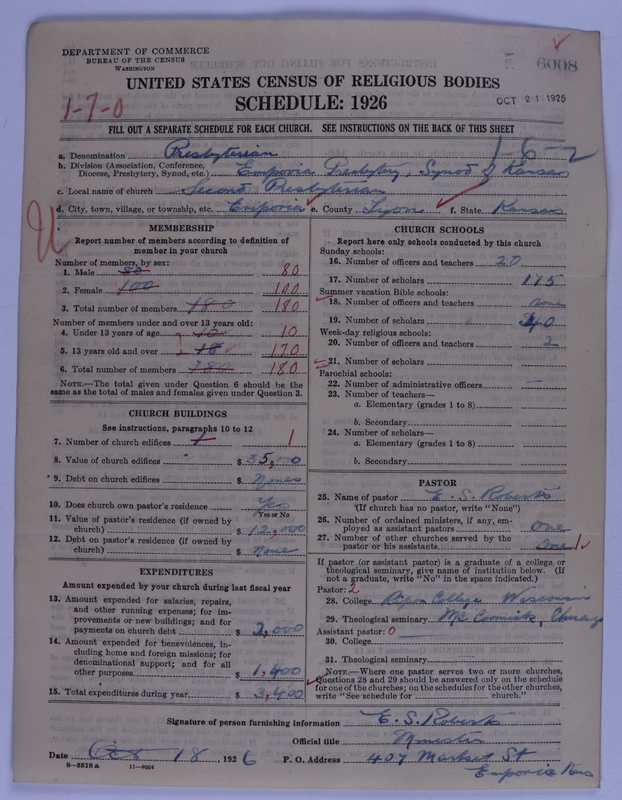 DEPARTMENT OF COMMERCE
BUREAU OF THE CENSUS
WASHINGTON
6008
UNITED STATES CENSUS OF RELIGIOUS BODIES
1-7-0
SCHEDULE: 1926
OCT 21 1926
FILL OUT A SEPARATE SCHEDULE FOR EACH CHURCH. SEE INSTRUCTIONS ON THE BACK OF THIS SHEET
1-6-2
a. Denomination Presbyterian
b. Division (Association, Conference,
Diocese, Presbytery, Synod, etc.) Emporia Presbytery, Synod of Kansas
c. Local name of church Second Presbyterian
d. City, town, village, or township, etc. Emporia e. County Lyon f. State Kansas
U
MEMBERSHIP
Report number of members according to definition of
member in your church
Number of members, by sex:
1. Male 80 80
2. Female 100 100
3. Total number of members 180 180
Number of members under and over 13 years old:
4. Under 13 years of age 10
5. 13 years old and over 18 170
6. Total number of members 180 180
NOTE.—The total given under Question 6 should be the
same as the total of males and females given under Question 3.
CHURCH BUILDINGS
See instructions, paragraphs 10 to 12
7. Number of church edifices 1 1
8. Value of church edifices $ 35,000
9. Debt on church edifices $
10. Does church own pastor's residence Yes
Yes or No
11. Value of pastor's residence (if owned by
church) $ 12,000
12. Debt on pastor's residence (if owned by
church) $ None
EXPENDITURES
Amount expended by your church during last fiscal year
13. Amount expended for salaries, repairs,
and other running expenses; for im-
provements or new buildings; and for
payments on church debt $ 2,000
14. Amount expended for benevolences, in-
cluding home and foreign missions; for
denominational support; and for all
other purposes $ 1,400
15. Total expenditures during year $ 3,400
CHURCH SCHOOLS
Report here only schools conducted by this church
Sunday schools:
16. Number of officers and teachers 20
17. Number of scholars 175
Summer vacation Bible schools:
18. Number of officers and teachers none
19. Number of scholars 40
Week-day religious schools:
20. Number of officers and teachers 2
21. Number of scholars
Parochial schools:
22. Number of administrative officers —
23. Number of teachers—
a. Elementary (grades 1 to 8)
b. Secondary
24. Number of scholars—
a. Elementary (grades 1 to 8)
b. Secondary
PASTOR
25. Name of pastor E. S. Roberts
(If church has no pastor, write "None")
26. Number of ordained ministers, if any, em-
ployed as assistant pastors one
27. Number of other churches served by the
pastor or his assistants one 1
If pastor (or assistant pastor) is a graduate of a college or
theological seminary, give name of institution below. (If
not a graduate, write "No" in the space indicated.)
Pastor: 2
28. College Ripon College Wisconsin
29. Theological seminary McCormick, Chicago
Assistant pastor: 0
30. College
31. Theological seminary
NOTE.—Where one pastor serves two or more churches,
Questions 28 and 29 should be answered only on the schedule
for one of the churches; on the schedules for the other churches,
write "See schedule for church."
Signature of person furnishing information E. S. Roberts
Official title Minister
Date Oct 18 1926 P. O. Address 407 Market St
Emporia Kans
8—5518 a 11—9034